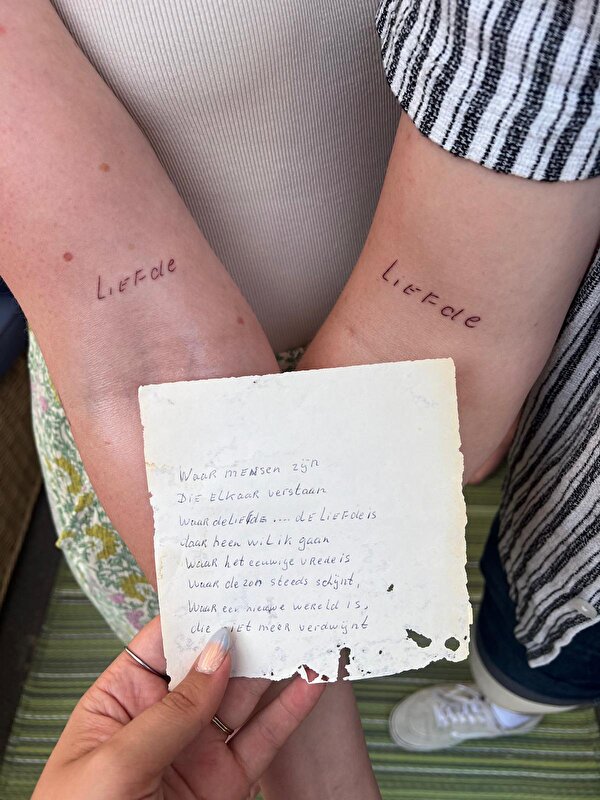 LIEFde
LIEFde
Waar mensen zijn
Die elkaar verstaan
Waar de liefde .... de liefde is
daar heen wil ik gaan
Waar het eeuwige vrede is
Waar de zon steeds schijnt,
Waar een nieuwe wereld is,
die niet meer verdwijnt